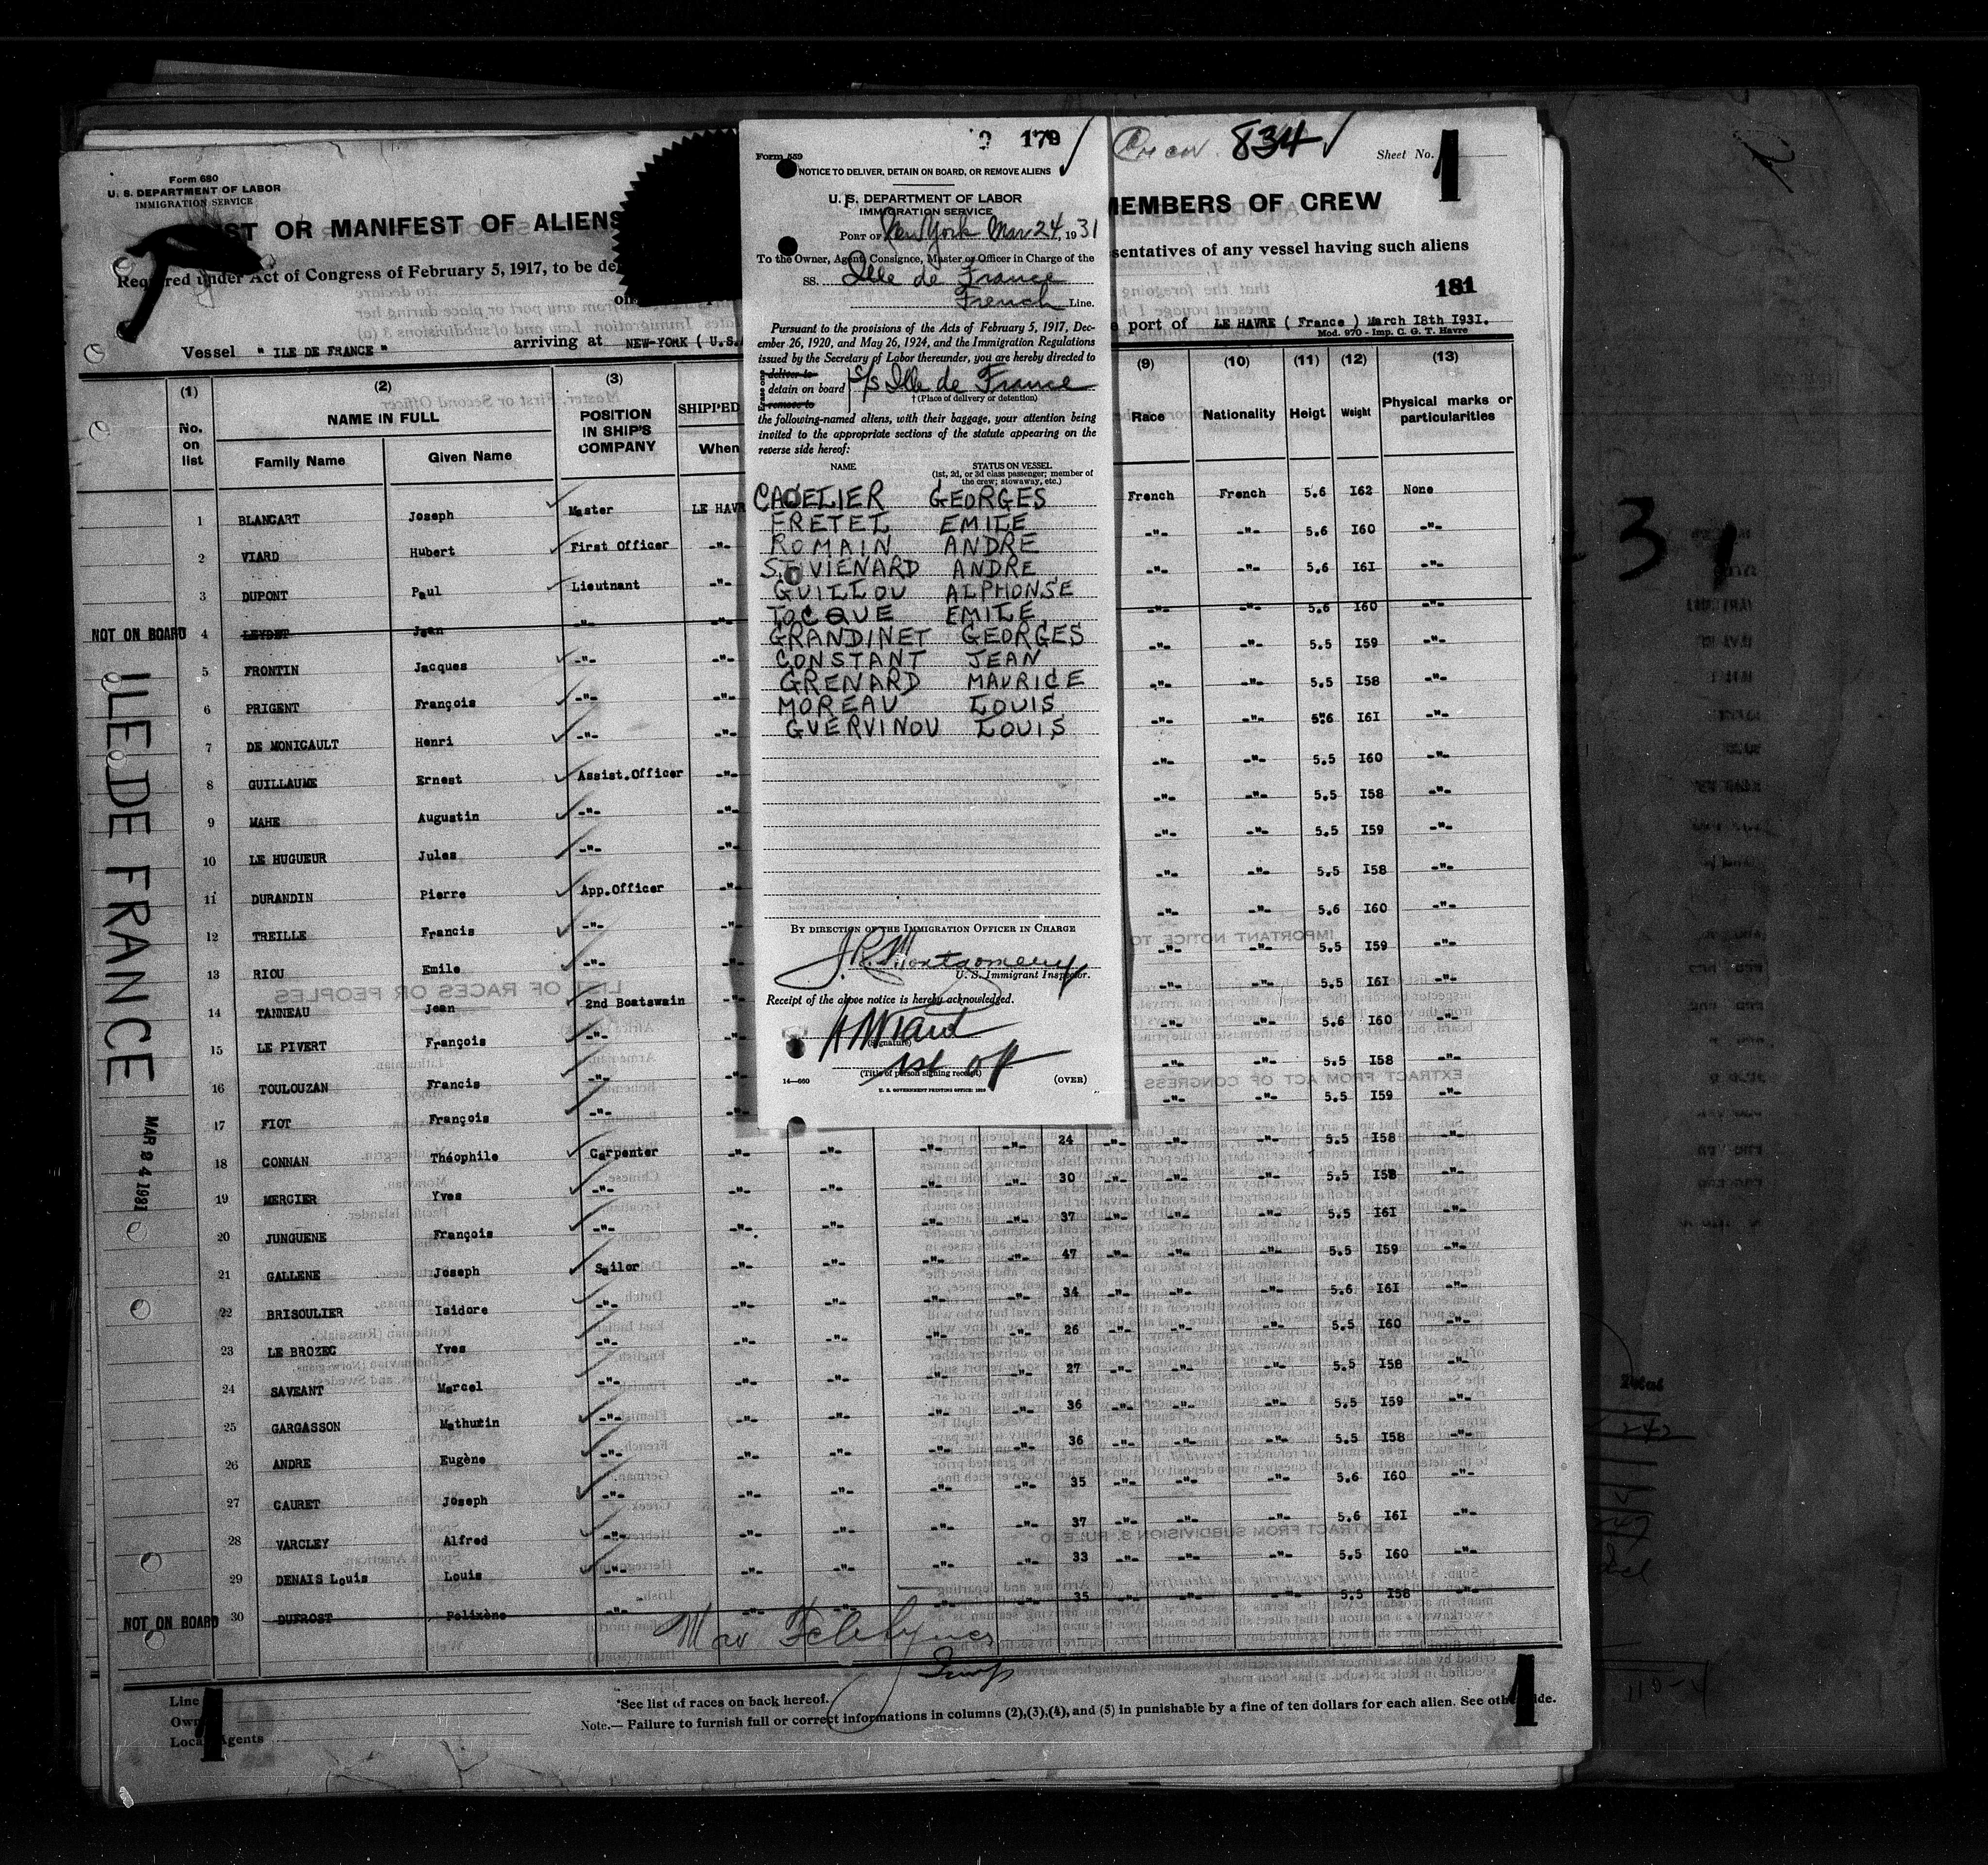 Form 680
U. S. DEPARTMENT OF LABOR
IMMIGRATION SERVICE
OR MANIFEST OF ALIENS
Required under Act of Congress of February 5, 1917, to be
Vessel " ILE DE FRANCE " arriving at NEW-YORK ( U.S.
179
Form 559
NOTICE TO DELIVER, DETAIN ON BOARD, OR REMOVE ALIENS
U. S. DEPARTMENT OF LABOR
IMMIGRATION SERVICE
PORT OF New York Mar 24, 1931
To the Owner, Agent, Consignee, Master or Officer in Charge of the
SS. Ille de France
French Line.
Pursuant to the provisions of the Acts of February 5, 1917, Dec-
ember 26, 1920, and May 26, 1924, and the Immigration Regulations
issued by the Secretary of Labor thereunder, you are hereby directed to
Erase one
deliver to
detain on board S/S Ille de France
remove to
†(Place of delivery or detention)
the following-named aliens, with their baggage, your attention being
invited to the appropriate sections of the statute appearing on the
reverse side hereof:
NAME STATUS ON VESSEL
(1st, 2d, or 3d class passenger; member of
the crew; stowaway, etc.)
GEORGES
FRETEL EMILE
ROMAIN ANDRE
VIENARD ANDRE
GUILLOU ALPHONSE
TOCQUE EMILE
GRANDINET GEORGES
CONSTANT JEAN
GRENARD MAURICE
MOREAU LOUIS
GUERVINOU LOUIS
BY DIRECTION OF THE IMMIGRATION OFFICER IN CHARGE
J.R. Montgomery
U. S. Immigrant Inspector.
Receipt of the above notice is hereby acknowledged.
(Signature)
1st Off
(Title of person signing receipt)
14—660 (OVER)
U. S. GOVERNMENT PRINTING OFFICE:
Crew 834
Sheet No. 1
MEMBERS OF CREW
sentatives of any vessel having such aliens
181
port of LE HAVRE ( France ) March 18th 1931.
Mod. 970 - Imp. C. G. T. Havre
(1) (2) (3) (9) (10) (11) (12) (13)
No. on list NAME IN FULL POSITION IN SHIP'S COMPANY SHIPPED Race Nationality Heigt Weight Physical marks or particularities
Family Name Given Name When
1 BLANCART Joseph Master LE HAVR French French 5.6 I62 None
2 VIARD Hubert First Officer -"- -"- -"- 5.6 I60 -"-
3 DUPONT Paul Lieutnant -"- -"- -"- 5.6 I6I -"-
NOT ON BOARD 4 LEYDET Jean -"- -"- -"- 5.6 I60 -"-
5 FRONTIN Jacques -"- -"- -"- -"- 5.5 I59 -"-
6 PRIGENT François -"- -"- -"- -"- 5.5 I58 -"-
7 DE MONICAULT Henri -"- -"- -"- -"- 5.6 I6I -"-
8 GUILLAUME Ernest Assist.Officer -"- -"- -"- 5.5 I60 -"-
9 MAHE Augustin -"- -"- -"- -"- 5.5 I58 -"-
10 LE HUGUEUR Jules -"- -"- -"- -"- 5.5 I59 -"-
11 DURANDIN Pierre App.Officer -"- -"- -"- 5.5 I58 -"-
12 TREILLE Francis -"- -"- -"- -"- 5.6 I60 -"-
13 RIOU Emile -"- -"- -"- -"- 5.5 I59 -"-
14 TANNEAU Jean 2nd Boatswain -"- -"- -"- 5.5 I6I -"-
15 LE PIVERT François -"- -"- -"- -"- 5.6 I60 -"-
16 TOULOUZAN Francis -"- -"- -"- -"- 5.5 I58 -"-
17 FIOT François -"- -"- -"- -"- 5.5 I59 -"-
18 CONNAN Théophile Carpenter -"- -"- -"- -"- 24 -"- -"- -"- 5.5 I58 -"-
19 MERCIER Yves -"- -"- -"- -"- -"- 30 -"- -"- -"- 5.5 I58 -"-
20 JUNGUENE François -"- -"- -"- -"- -"- 37 -"- -"- -"- 5.5 I6I -"-
21 GALLENE Joseph Sailor -"- -"- -"- -"- 47 -"- -"- -"- 5.5 I59 -"-
22 BRISOULIER Isidore -"- -"- -"- -"- -"- 34 -"- -"- -"- 5.6 I6I -"-
23 LE BROZEC Yves -"- -"- -"- -"- -"- 26 -"- -"- -"- 5.5 I60 -"-
24 SAVEANT Marcel -"- -"- -"- -"- -"- 27 -"- -"- -"- 5.5 I58 -"-
25 GARGASSON Mathurin -"- -"- -"- -"- -"- 36 -"- -"- -"- 5.5 I59 -"-
26 ANDRE Eugène -"- -"- -"- -"- -"- 36 -"- -"- -"- 5.5 I58 -"-
27 CAURET Joseph -"- -"- -"- -"- -"- 35 -"- -"- -"- 5.6 I60 -"-
28 VARCLEY Alfred -"- -"- -"- -"- -"- 37 -"- -"- -"- 5.6 I6I -"-
29 DENAIS Louis Louis -"- -"- -"- -"- -"- 33 -"- -"- -"- 5.5 I60 -"-
NOT ON BOARD 30 DUFROST Polixène -"- -"- -"- -"- -"- 35 -"- -"- -"- 5.5 I58 -"-
ILE DE FRANCE
MAR 24 1931
Line
Own
Local Agents
1
*See list of races on back hereof.
Note.— Failure to furnish full or correct informations in columns (2),(3),(4), and (5) in punishable by a fine of ten dollars for each alien. See other side.
1